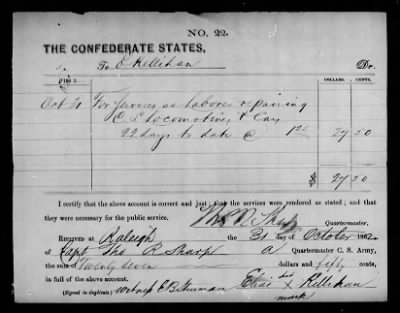 NO. 22.
THE CONFEDERATE STATES,
To E Kellihan Dr.
1862 DOLLARS. CENTS.
Oct 31 For Services as Laborer repairing
C S Locomotives & Cars
22 days to date @ 1.25 27 50
$ 27 50
I certify that the above account is correct and just; that the services were rendered as stated; and that
they were necessary for the public service.
Thos R Sharp Quartermaster.
RECEIVED at Raleigh the 31 day of October 1862
of Capt Thos R. Sharp a Quartermaster C. S. Army,
the sum of Twenty Seven dollars and fifty cents,
in full of the above account.
(Signed in duplicate) Witness E B Elias his x Kellihan
mark